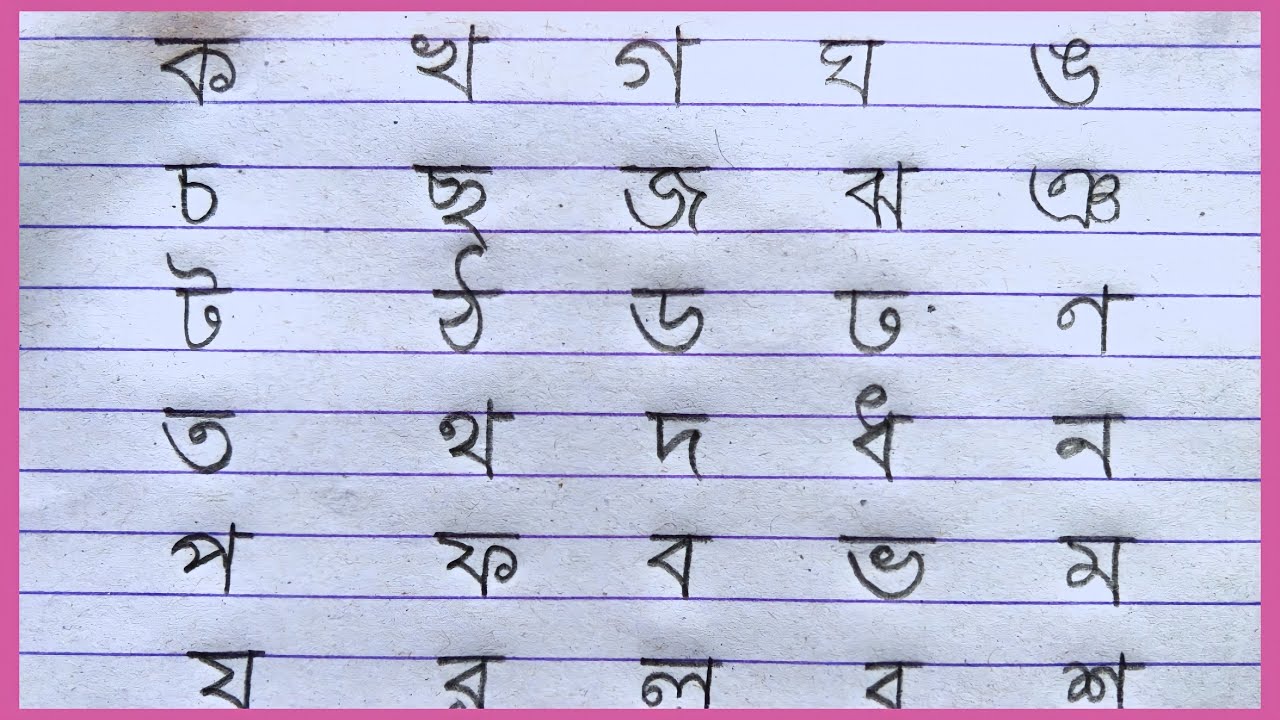 ক খ গ ঘ ঙ
চ ছ জ ঝ ঞ
ট ঠ ড ঢ ণ
ত থ দ ধ ন
প ফ ব ভ ম
য র ল ব শ